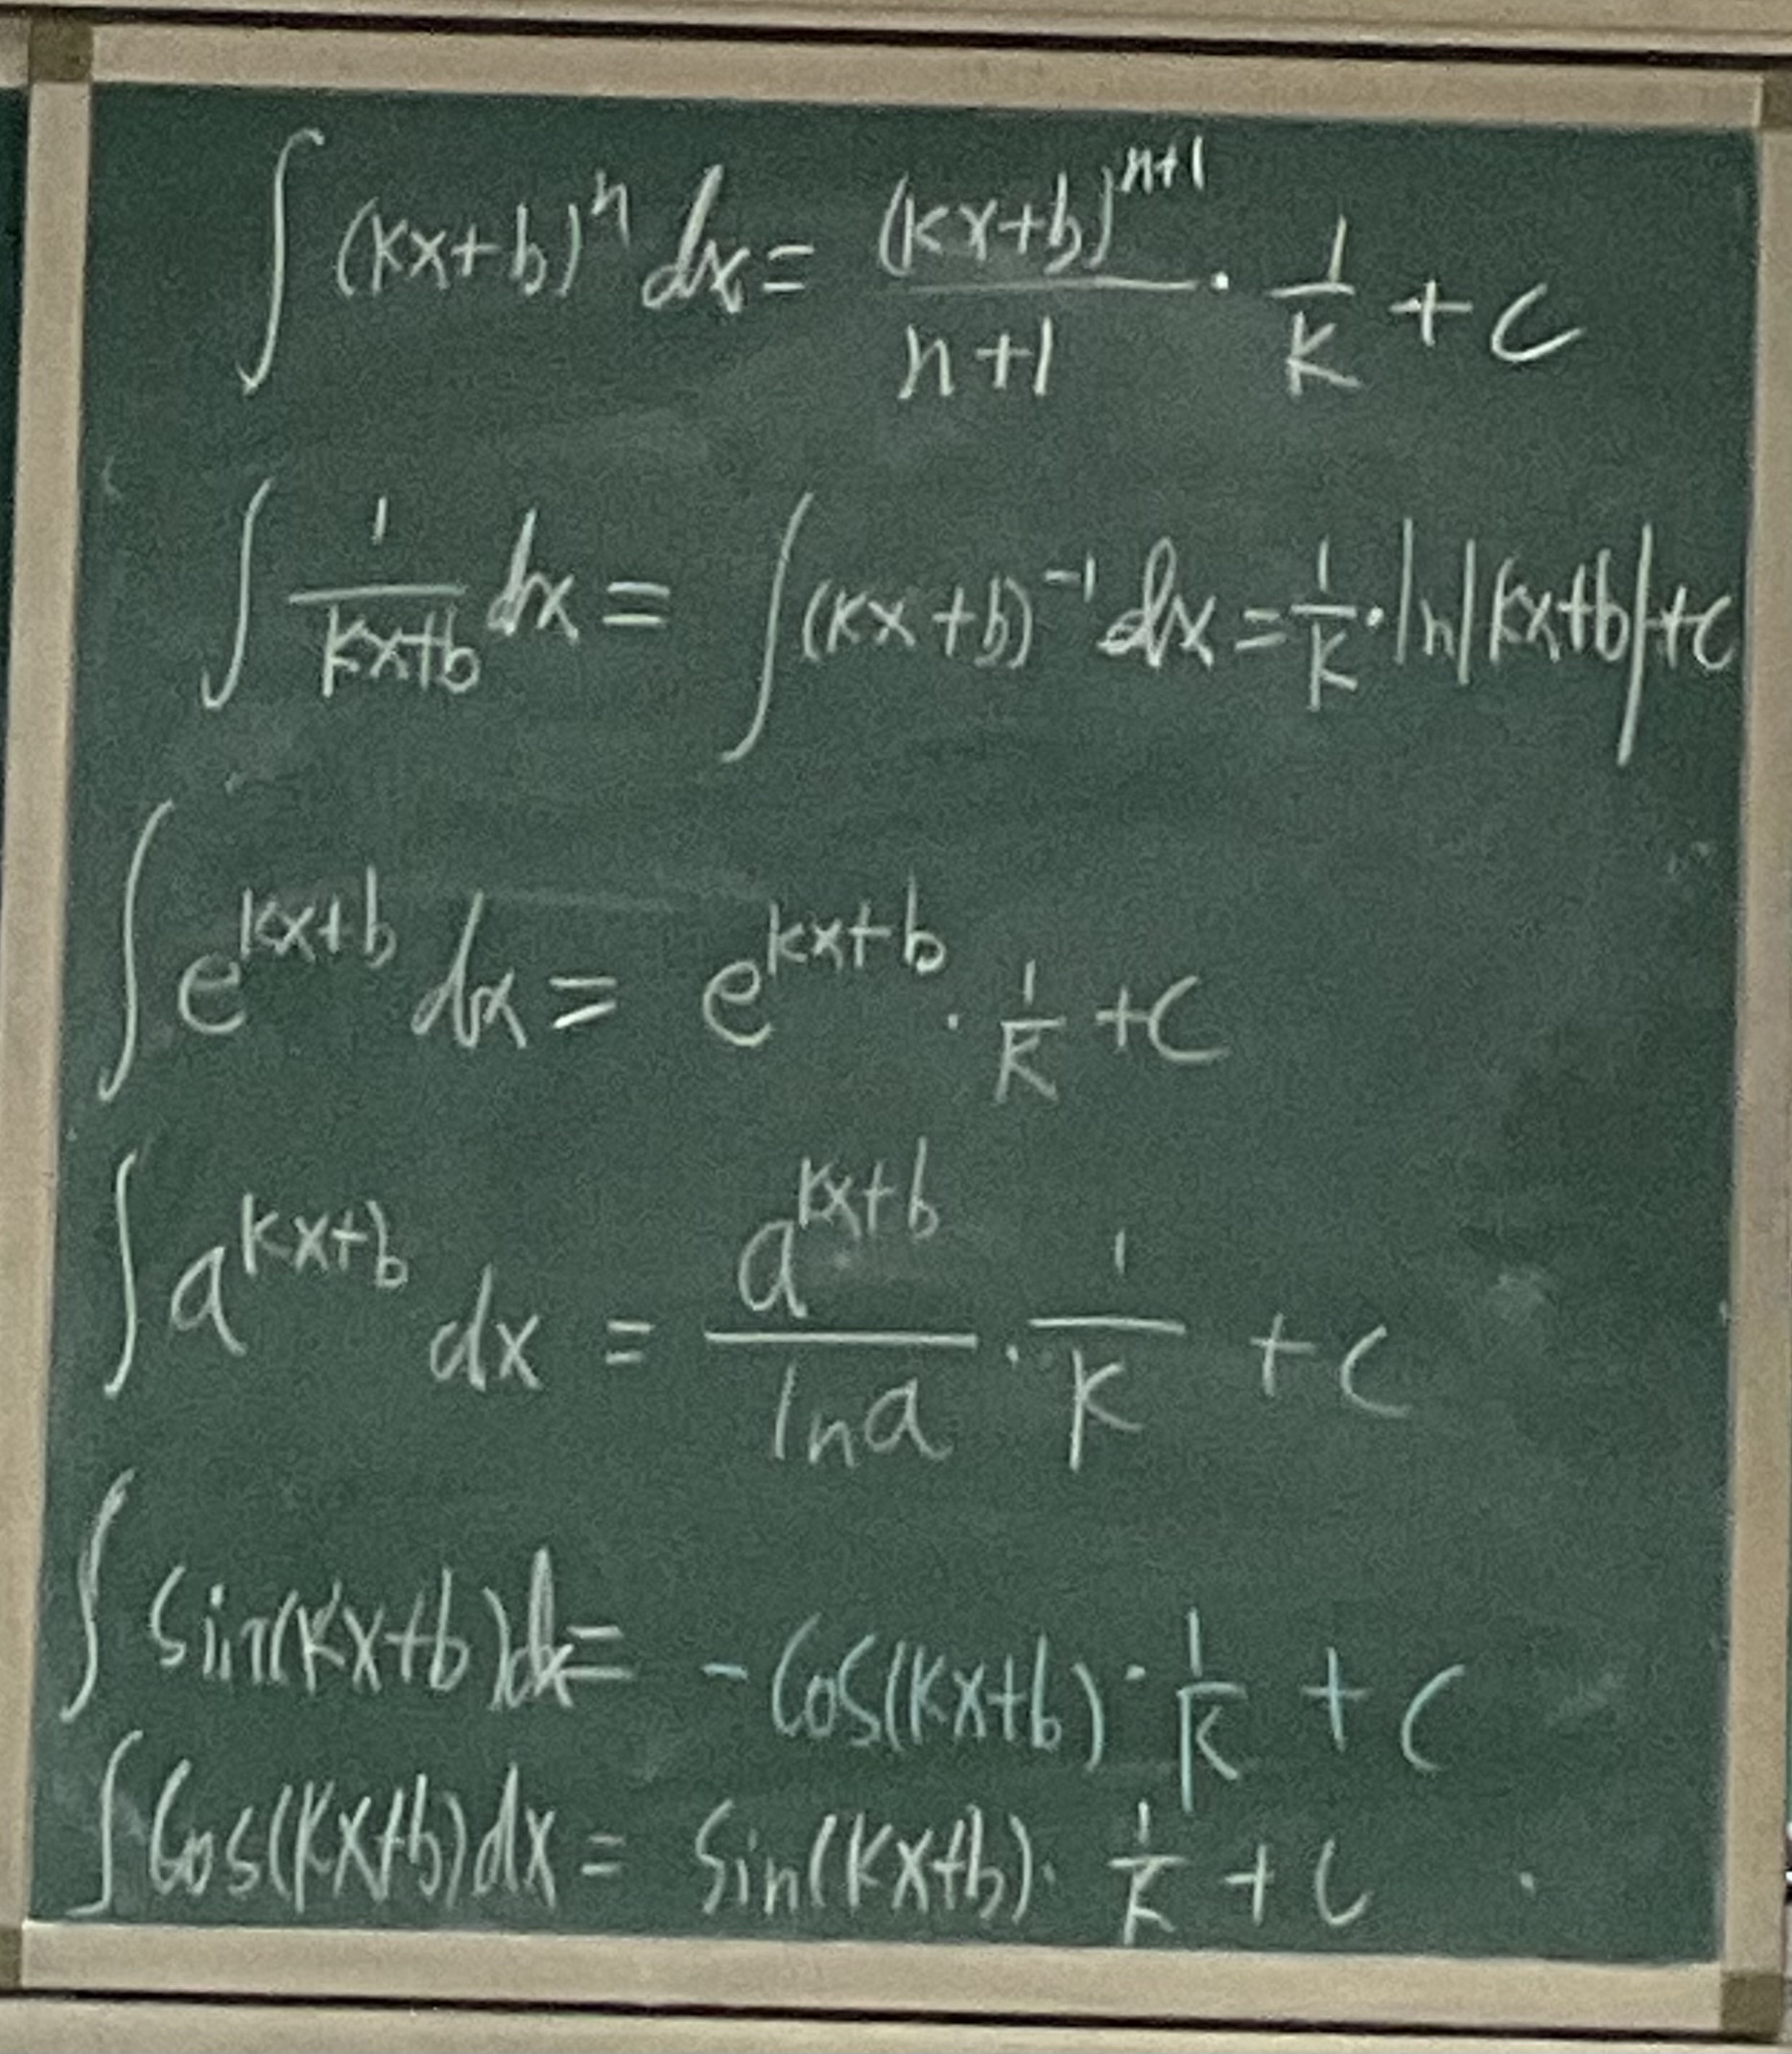 ∫ (kx+b)^n dx = (kx+b)^(n+1) / (n+1) · 1/k + c
∫ 1/(kx+b) dx = ∫ (kx+b)^(-1) dx = 1/k · ln|kx+b| + c
∫ e^(kx+b) dx = e^(kx+b) · 1/k + c
∫ a^(kx+b) dx = a^(kx+b) / ln a · 1/k + c
∫ sin(kx+b) dx = -cos(kx+b) · 1/k + c
∫ cos(kx+b) dx = sin(kx+b) · 1/k + c